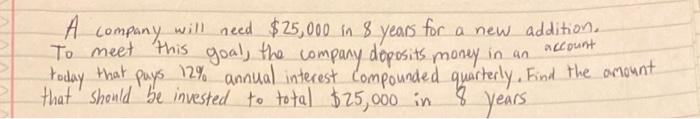 A company will need $25,000 in 8 years for a new addition.
To meet this goal, the company deposits money in an account
today that pays 12% annual interest compounded quarterly. Find the amount
that should be invested to total $25,000 in 8 years